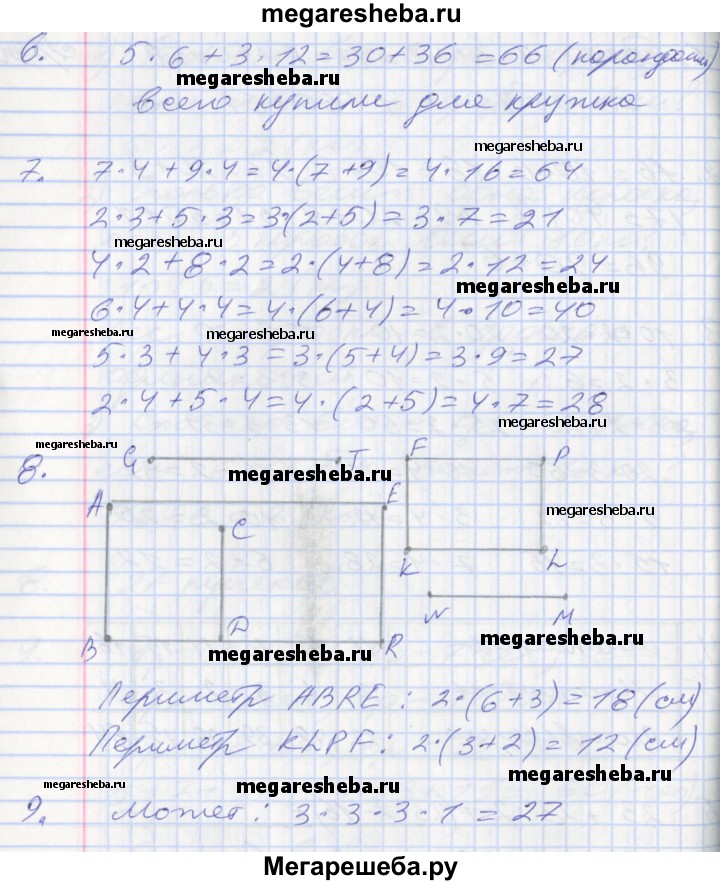 megaresheba.ru
6. 5·6+3·12=30+36=66 (карандаши)
megaresheba.ru
всего купили для кружка
megaresheba.ru
7. 7·4+9·4=4·(7+9)=4·16=64
2·3+5·3=3·(2+5)=3·7=21
megaresheba.ru
4·2+8·2=2·(4+8)=2·12=24
megaresheba.ru
6·4+4·4=4·(6+4)=4·10=40
megaresheba.ru megaresheba.ru
5·3+4·3=3·(5+4)=3·9=27
2·4+5·4=4·(2+5)=4·7=28
megaresheba.ru
megaresheba.ru
8. G T F P
megaresheba.ru
A E
megaresheba.ru
C
K L
N M
B D R
megaresheba.ru
megaresheba.ru
Периметр ABRE: 2·(6+3)=18 (см)
Периметр KLPF: 2·(3+2)=12 (см)
megaresheba.ru megaresheba.ru megaresheba.ru
9. Может: 3·3·3·1=27
megaresheba.ru
Мегарешеба.ру